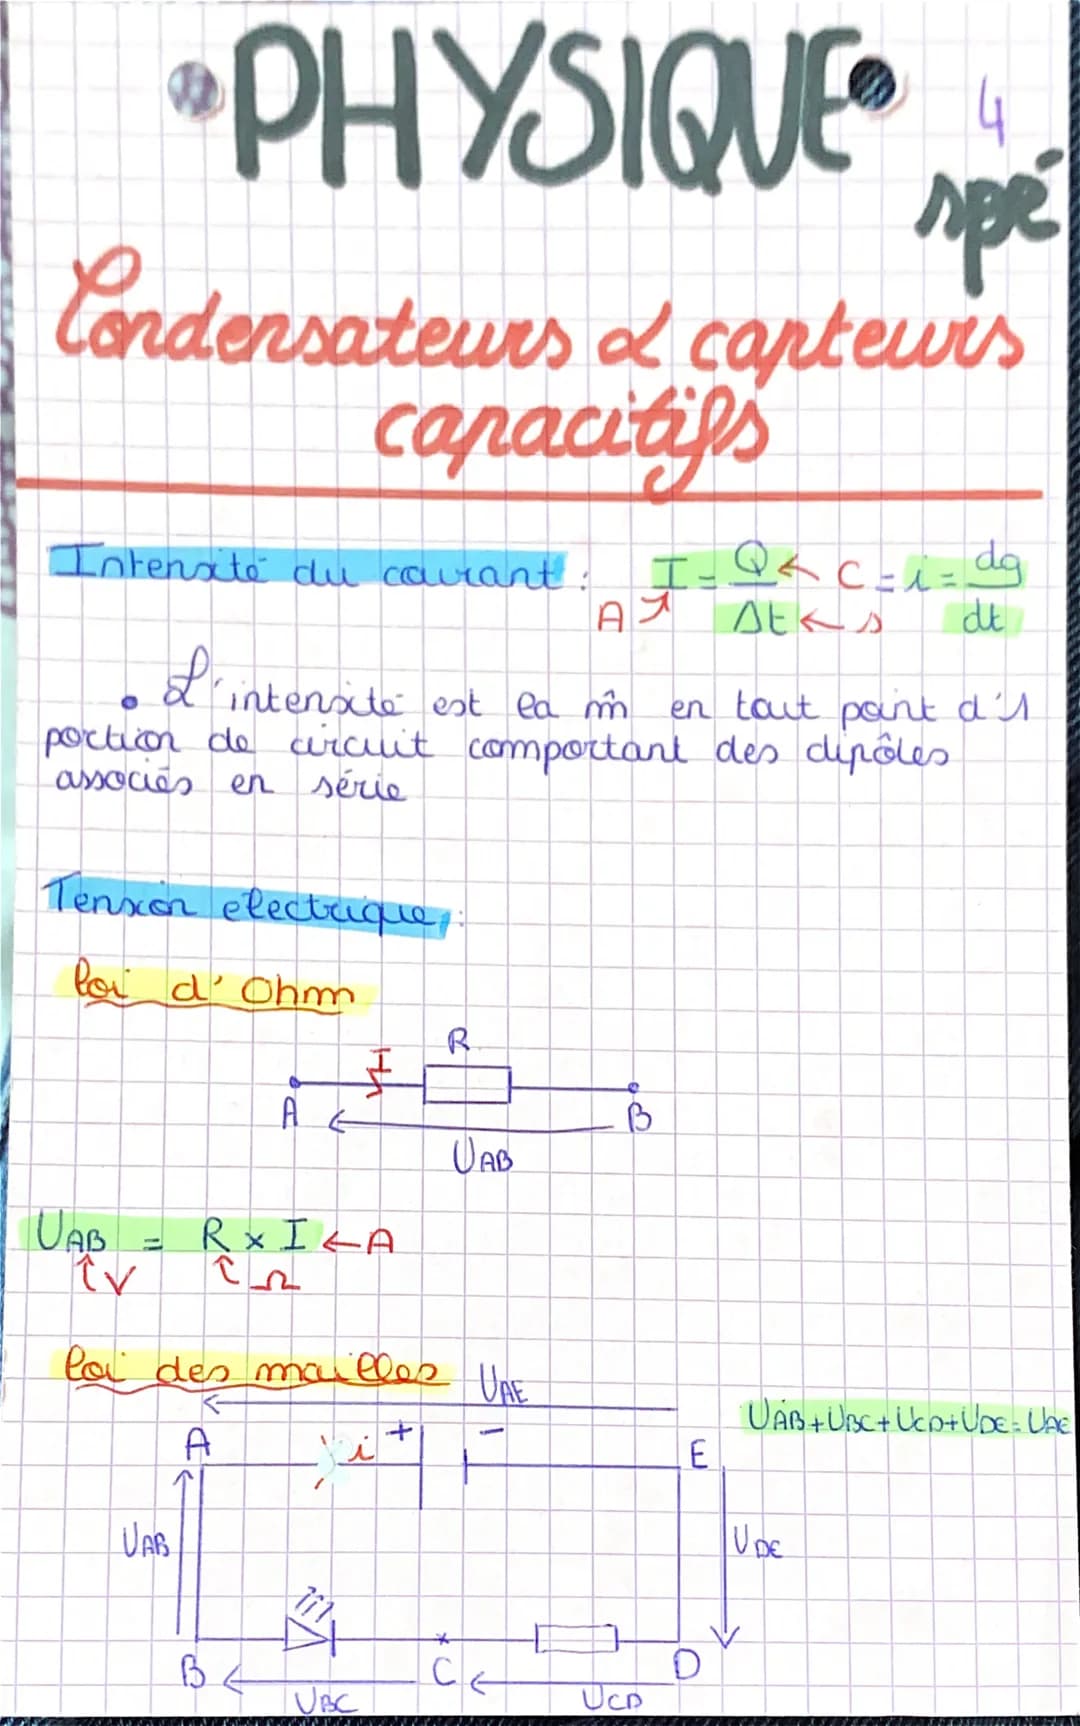 • PHYSIQUE • 4
spé
Condensateurs & capteurs
capacitifs
Intensité du courant : I = Q ← C = i = dq
A ↗ Δt ← s dt
• L'intensité est la m̂ en tout point d'1
portion de circuit comportant des dipôles
associés en série
Tension electrique :
loi d'Ohm
R
I
A B
UAB
UAB = R x I ← A
↑ V ↑ Ω
loi des mailles UAE
UAB + UBC + UCD + UDE = UAE
A i + - E
UAB UDE
B C D
UBC UCD